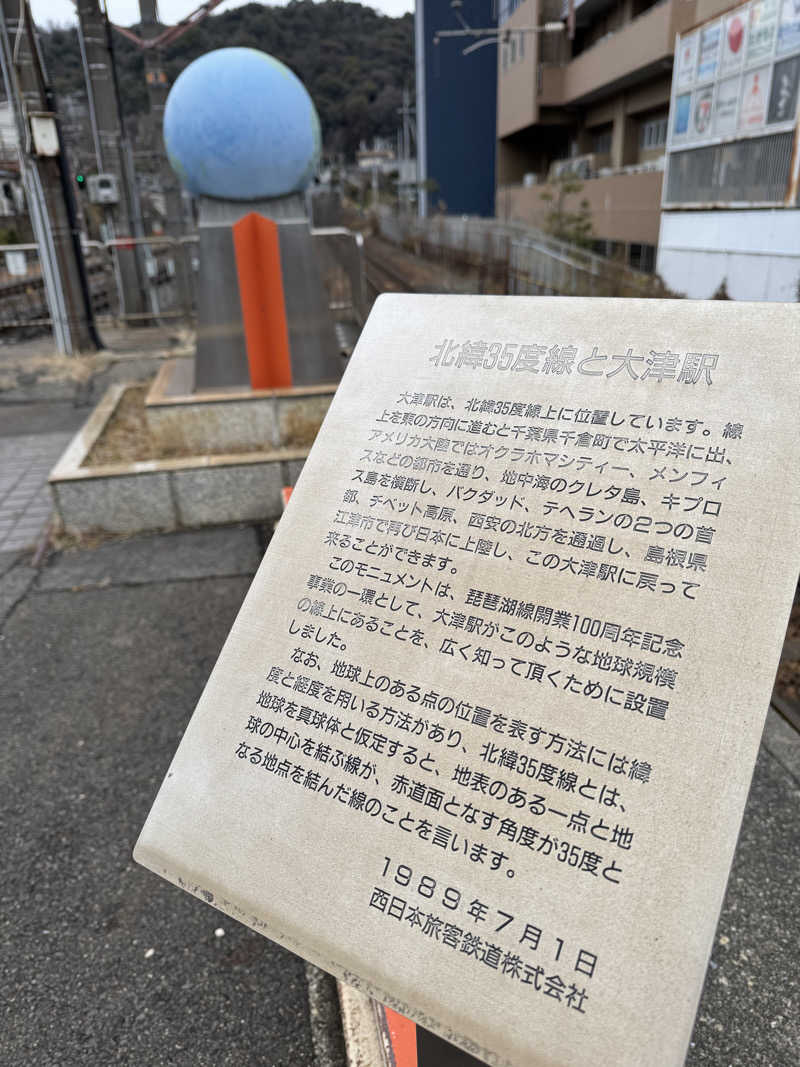 北緯35度線と大津駅
大津駅は、北緯35度線上に位置しています。線
上を東の方向に進むと千葉県千倉町で太平洋に出、
アメリカ大陸ではオクラホマシティー、メンフィ
スなどの都市を通り、地中海のクレタ島、キプロ
ス島を横断し、バクダッド、テヘランの2つの首
都、チベット高原、西安の北方を通過し、島根県
江津市で再び日本に上陸し、この大津駅に戻って
来ることができます。
このモニュメントは、琵琶湖線開業100周年記念
事業の一環として、大津駅がこのような地球規模
の線上にあることを、広く知って頂くために設置
しました。
なお、地球上のある点の位置を表す方法には緯
度と経度を用いる方法があり、北緯35度線とは、
地球を真球体と仮定すると、地表のある一点と地
球の中心を結ぶ線が、赤道面となす角度が35度と
なる地点を結んだ線のことを言います。
1989年7月1日
西日本旅客鉄道株式会社